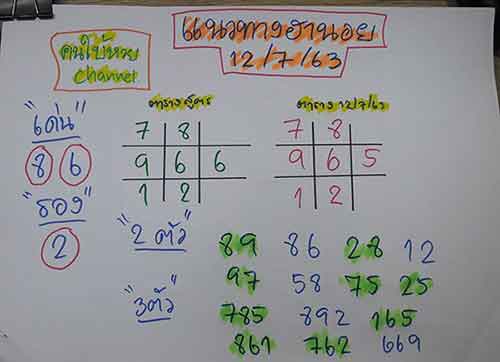 แนวทางฮานอย
12/7/63
คนใบ้หวย
channel
ตารางสูตร
ตาราง 12/7/63
"เด่น"
8 6
"รอง"
2
7 8
9 6 6
1 2
7 8
9 6 5
1 2
"2 ตัว"
89 86 28 12
97 58 75 25
"3ตัว"
785 892 165
861 762 669